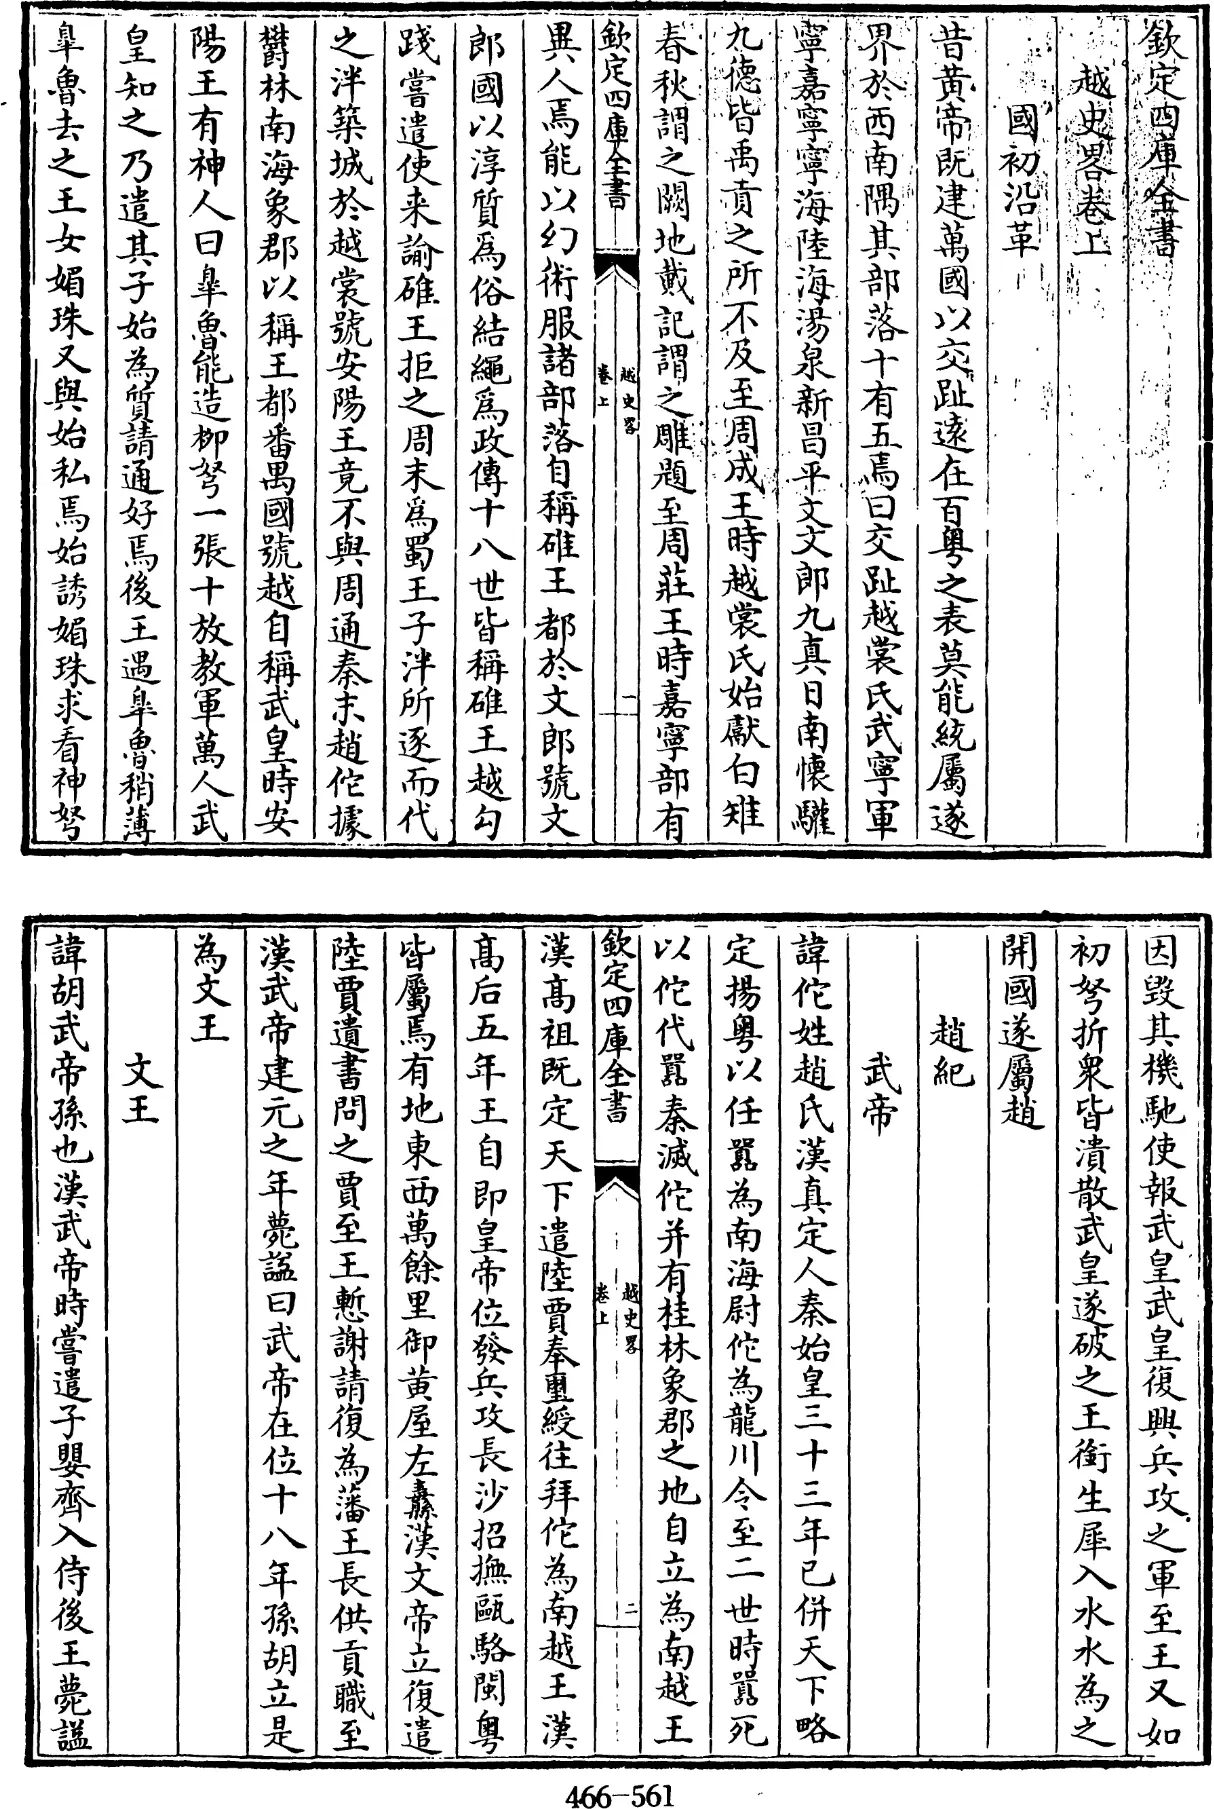 欽定四庫全書
越史畧卷上
國初沿革
昔黃帝既建萬國以交趾遠在百粵之表莫能統屬遂
界於西南隅其部落十有五焉曰交趾越裳氏武寧軍
寧嘉寧寧海陸海湯泉新昌平文文郎九真日南懷驩
九德皆禹貢之所不及至周成王時越裳氏始獻白雉
春秋謂之闕地戴記謂之雕題至周莊王時嘉寧部有
欽定四庫全書
越史畧
卷上
一
異人焉能以幻術服諸部落自稱碓王都於文郎號文
郎國以淳質為俗結繩為政傳十八世皆稱碓王越勾
踐嘗遣使来諭碓王拒之周末為蜀王子泮所逐而代
之泮築城於越裳號安陽王竟不與周通秦末趙佗據
欝林南海象郡以稱王都番禺國號越自稱武皇時安
陽王有神人曰臯魯能造柳弩一張十放教軍萬人武
皇知之乃遣其子始為質請通好焉後王遇臯魯稍薄
臯魯去之王女媚珠又與始私焉始誘媚珠求看神弩
因毀其機馳使報武皇武皇復興兵攻之軍至王又如
初弩折衆皆潰散武皇遂破之王銜生犀入水水為之
開國遂屬趙
趙紀
武帝
諱佗姓趙氏漢真定人秦始皇三十三年已併天下略
定揚粵以任囂為南海尉佗為龍川令至二世時囂死
以佗代囂秦滅佗并有桂林象郡之地自立為南越王
欽定四庫全書
越史畧
卷上
二
漢高祖既定天下遣陸賈奉璽綬往拜佗為南越王漢
高后五年王自即皇帝位發兵攻長沙招撫甌駱閩粵
皆屬焉有地東西萬餘里御黃屋左纛漢文帝立復遣
陸賈遺書問之賈至王慙謝請復為藩王長供貢職至
漢武帝建元之年薨諡曰武帝在位十八年孫胡立是
為文王
文王
諱胡武帝孫也漢武帝時嘗遣子嬰齊入侍後王薨諡
466-561